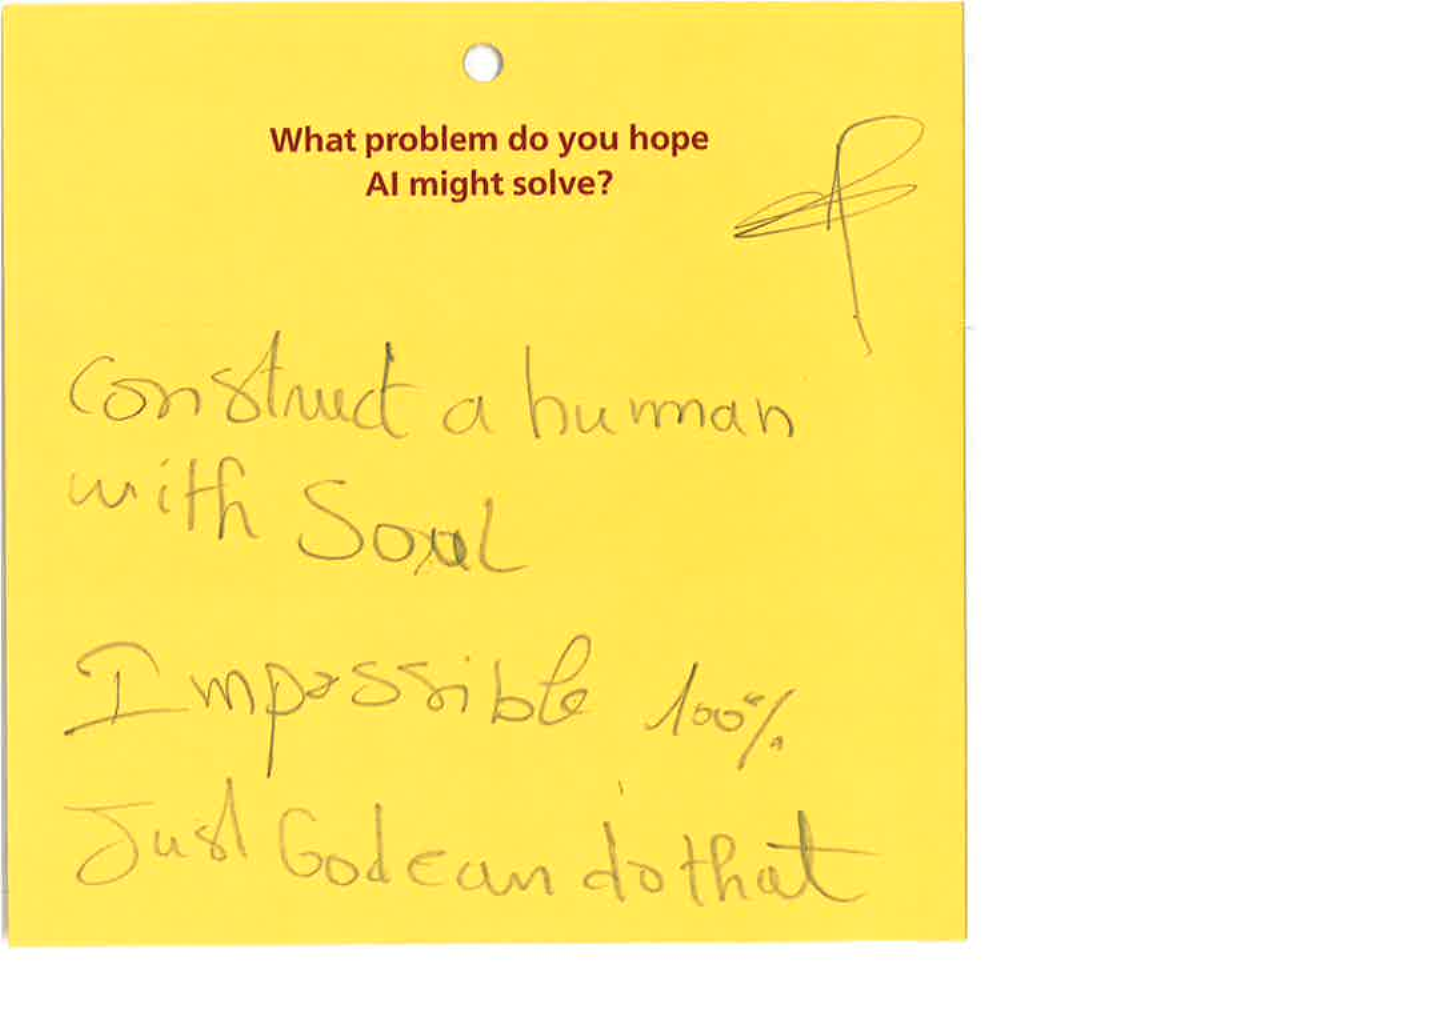 What problem do you hope
AI might solve?
Construct a human
with Soul
Impossible 100%
Just God can do that